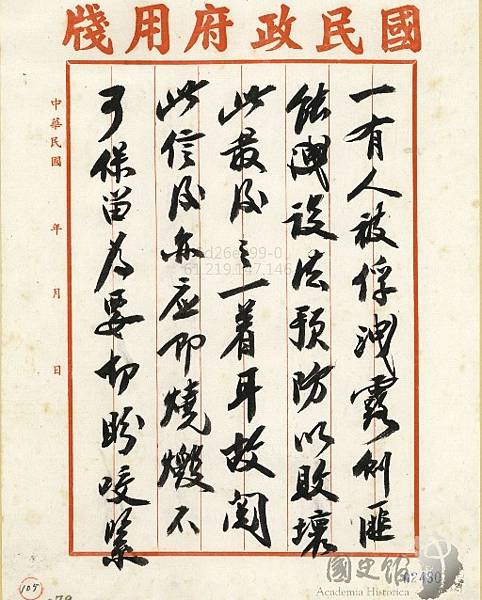 國民政府用牋
一有人被俘洩露則匪
能設法預防以敗壞
此最後之一着耳故閱
此信後亦應即燒燬不
可保留為要切盼咬緊
中華民國 年 月 日
61.219.147.146
國史館
Academia Historica
105